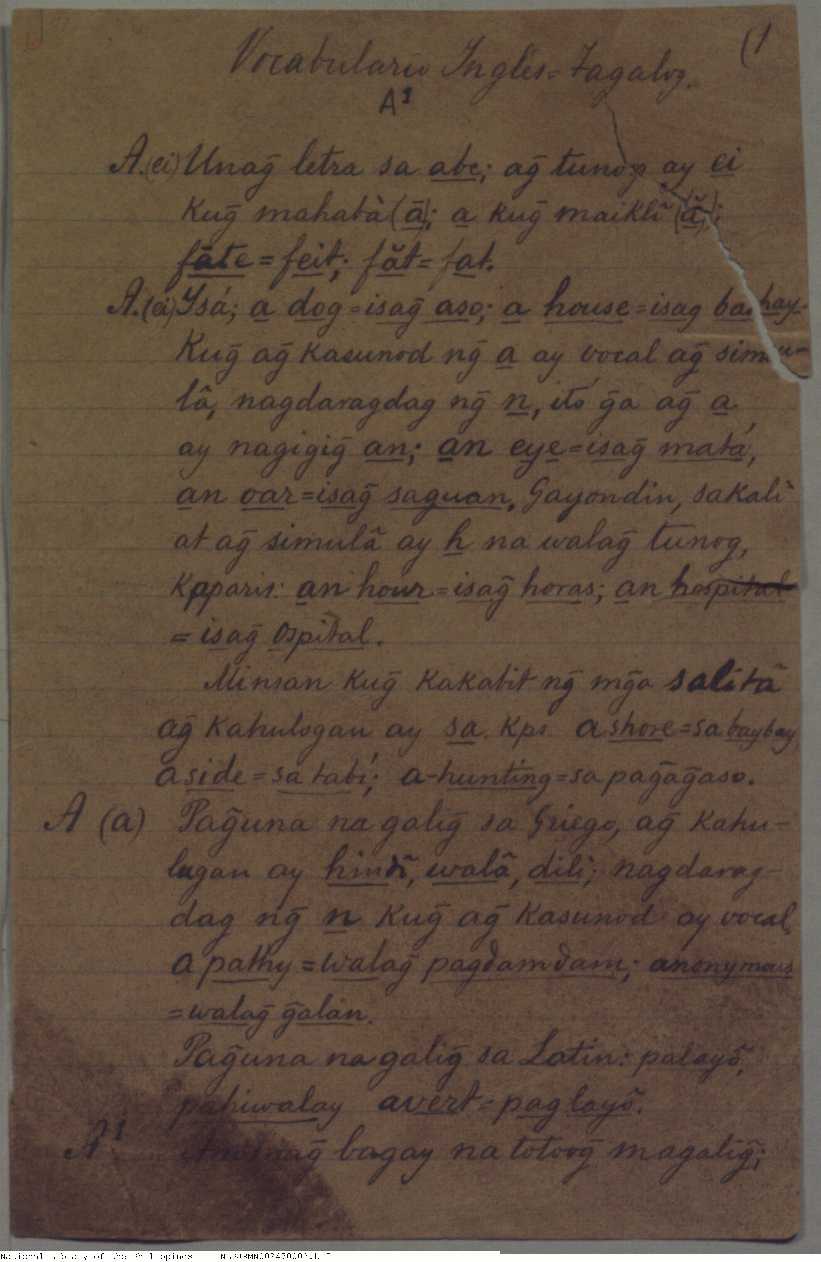 (1
Vocabulario Inglés=Tagalog.
A¹
A.(ei) Unag̃ letra sa abc; ag̃ tunog ay ei
kug̃ mahabà (ā); a kug̃ maiklî (ă);
fāte = feit; făt = fat.
A.(ei) Ysá; a dog = isag̃ aso; a house = isag bahay.
Kug̃ ag̃ kasunod ng̃ a ay vocal ag̃ simu-
lâ, nagdaragdag ng̃ n, itó g̃a ag̃ a
ay nagigig̃ an; an eye = isag̃ matá,
an oar = isag̃ saguan. Gayondin, sakali
at ag̃ simulâ ay h na walag̃ tunog,
kapparis: an hour = isag̃ horas; an hospital
= isag̃ ospital.
Minsan kug̃ kakabit ng̃ mg̃a salitâ
ag̃ kahulogan ay sa. kps. a shore = sa baybay,
aside = sa tabí; a-hunting = sa pag̃ag̃aso.
A (a) Pag̃una na galig̃ sa Griego, ag̃ kahu-
lugan ay hindî, walâ, dilì; nagdarag-
dag ng̃ n kug̃ ag̃ kasunod ay vocal,
apathy = walag̃ pagdamdam; anonymous
= walag̃ g̃alan.
Pag̃una na galig̃ sa Latin: palayô,
pahiwalay avert = paglayô.
A¹ bagay na totoog̃ magalig̃;
National Library of the Philippines